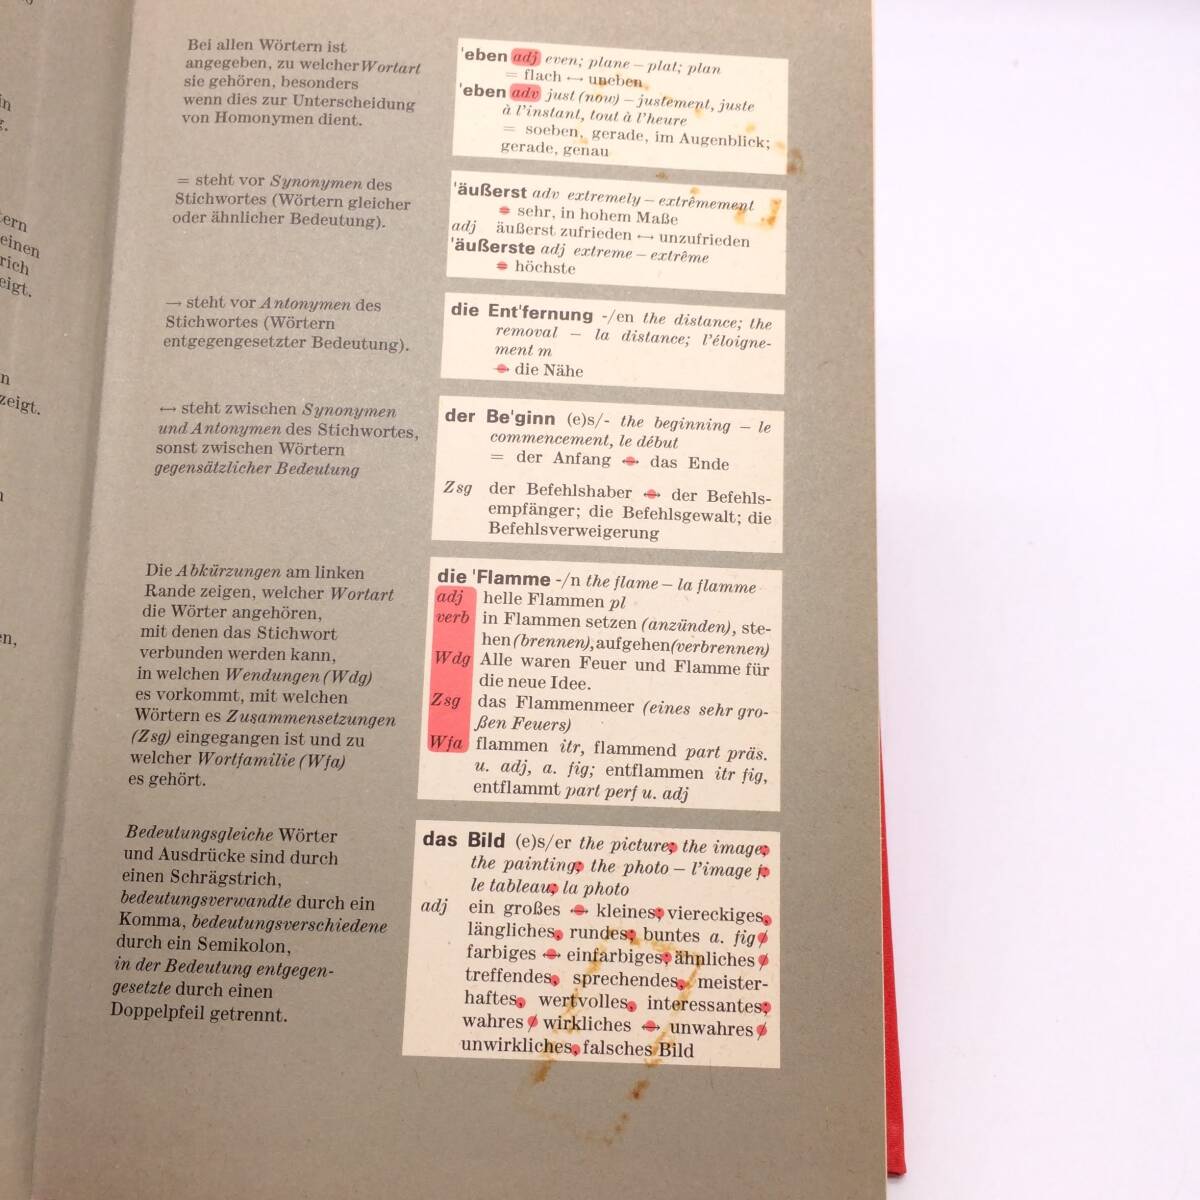 Bei allen Wörtern ist
angegeben, zu welcher Wortart
sie gehören, besonders
wenn dies zur Unterscheidung
von Homonymen dient.
'eben adj even; plane – plat; plan
= flach ↔ uneben
'eben adv just (now) – justement, juste
à l'instant, tout à l'heure
= soeben, gerade, im Augenblick;
gerade, genau
= steht vor Synonymen des
Stichwortes (Wörtern gleicher
oder ähnlicher Bedeutung).
'äußerst adv extremely – extrêmement
= sehr, in hohem Maße
adj äußerst zufrieden ↔ unzufrieden
'äußerste adj extreme – extrême
= höchste
→ steht vor Antonymen des
Stichwortes (Wörtern
entgegengesetzter Bedeutung).
die Ent'fernung -/en the distance; the
removal – la distance; l'éloigne-
ment m
→ die Nähe
↔ steht zwischen Synonymen
und Antonymen des Stichwortes,
sonst zwischen Wörtern
gegensätzlicher Bedeutung
der Be'ginn (e)s/- the beginning – le
commencement, le début
= der Anfang ↔ das Ende
Zsg der Befehlshaber ↔ der Befehls-
empfänger; die Befehlsgewalt; die
Befehlsverweigerung
Die Abkürzungen am linken
Rande zeigen, welcher Wortart
die Wörter angehören,
mit denen das Stichwort
verbunden werden kann,
in welchen Wendungen (Wdg)
es vorkommt, mit welchen
Wörtern es Zusammensetzungen
(Zsg) eingegangen ist und zu
welcher Wortfamilie (Wfa)
es gehört.
die 'Flamme -/n the flame – la flamme
adj helle Flammen pl
verb in Flammen setzen (anzünden), ste-
hen (brennen), aufgehen (verbrennen)
Wdg Alle waren Feuer und Flamme für
die neue Idee.
Zsg das Flammenmeer (eines sehr gro-
ßen Feuers)
Wfa flammen itr, flammend part präs.
u. adj, a. fig; entflammen itr fig,
entflammt part perf u. adj
Bedeutungsgleiche Wörter
und Ausdrücke sind durch
einen Schrägstrich,
bedeutungsverwandte durch ein
Komma, bedeutungsverschiedene
durch ein Semikolon,
in der Bedeutung entgegen-
gesetzte durch einen
Doppelpfeil getrennt.
das Bild (e)s/er the picture; the image;
the painting; the photo – l'image f;
le tableau; la photo
adj ein großes ↔ kleines; viereckiges,
längliches, rundes; buntes a. fig /
farbiges ↔ einfarbiges; ähnliches /
treffendes, sprechendes, meister-
haftes, wertvolles, interessantes;
wahres / wirkliches ↔ unwahres /
unwirkliches, falsches Bild